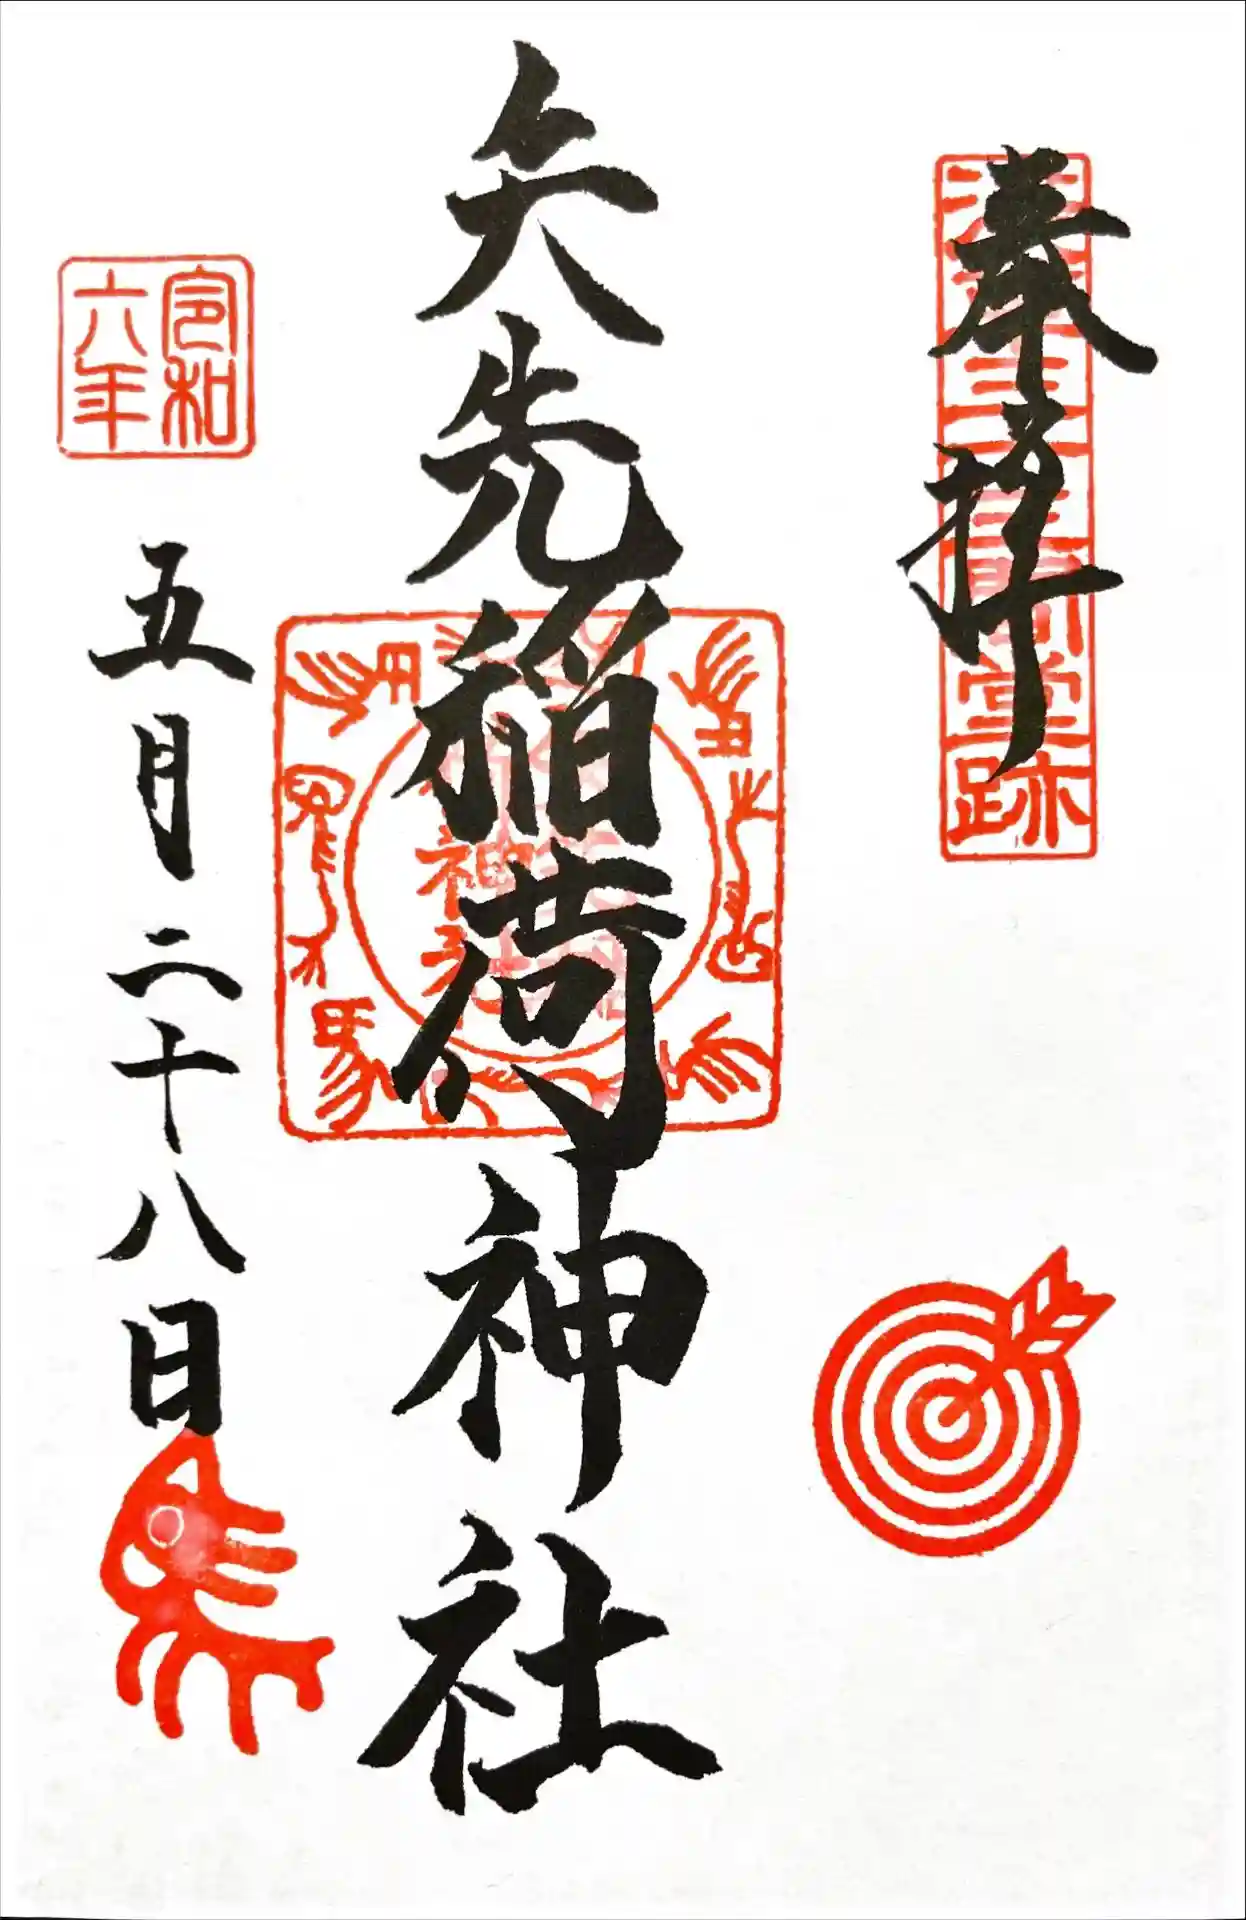 奉拝
浅草三十三間堂跡
矢先稲荷神社
令和六年
五月二十八日